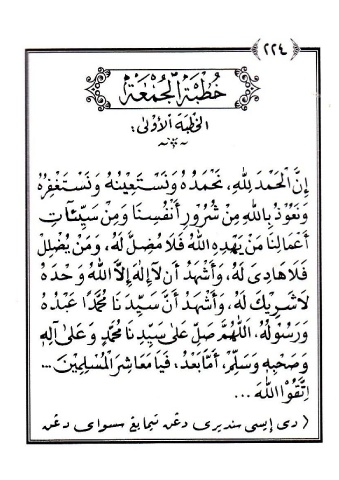 ٢٢٤
خُطْبَةُ الْجُمْعَةِ
الخطبة الأولى:
إِنَّ الْحَمْدَ لِلّٰهِ، نَحْمَدُهُ وَنَسْتَعِينُهُ وَنَسْتَغْفِرُهُ
وَنَعُوْذُ بِاللّٰهِ مِنْ شُرُوْرِ أَنْفُسِنَا وَمِنْ سَيِّئَاتِ
أَعْمَالِنَا مَنْ يَهْدِهِ اللّٰهُ فَلَا مُضِلَّ لَهُ، وَمَنْ يُضْلِلْ
فَلَا هَادِيَ لَهُ، وَأَشْهَدُ أَنْ لَا إِلٰهَ إِلَّا اللّٰهُ وَحْدَهُ
لَا شَرِيْكَ لَهُ، وَأَشْهَدُ أَنَّ سَيِّدَنَا مُحَمَّدًا عَبْدُهُ
وَرَسُوْلُهُ، اَللّٰهُمَّ صَلِّ عَلٰى سَيِّدِنَا مُحَمَّدٍ وَعَلٰى آلِهِ
وَصَحْبِهِ وَسَلِّمْ، أَمَّا بَعْدُ، فَيَا مَعَاشِرَ الْمُسْلِمِيْنَ ...
اِتَّقُوا اللّٰهَ ...
( دي إيسي سنديري دڠن تيمايڠ سسواي دڠن